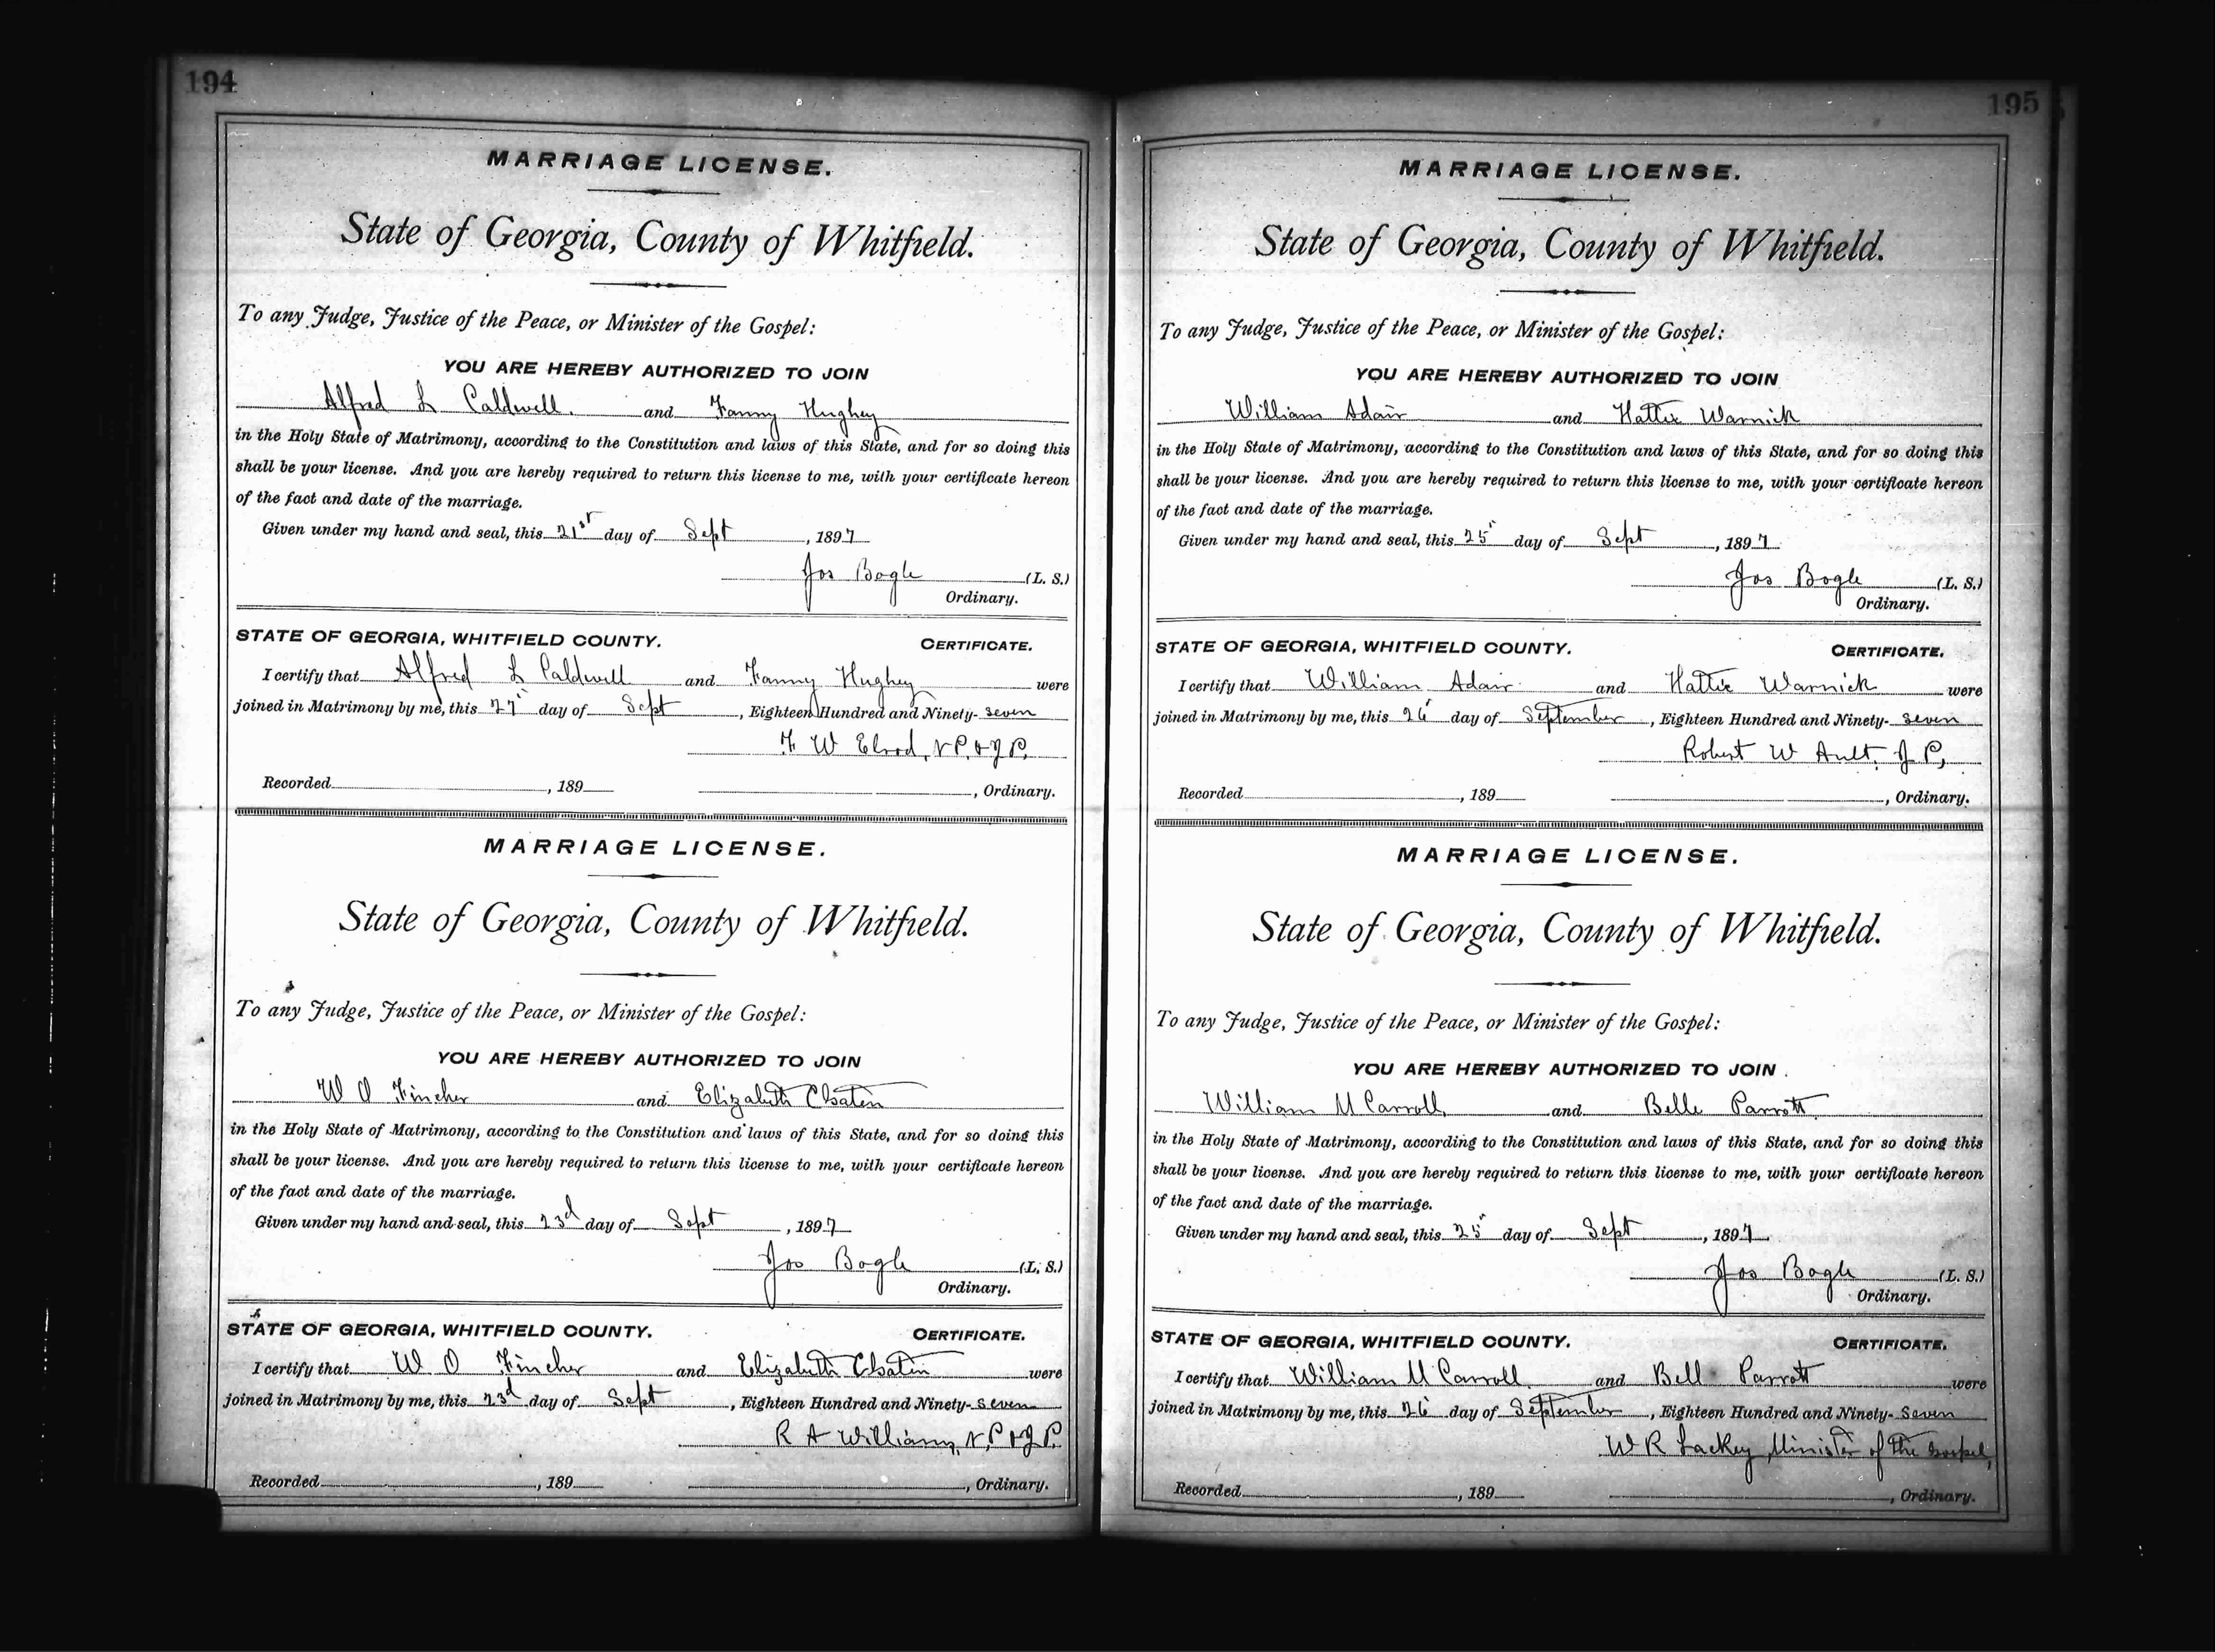 194
MARRIAGE LICENSE.
State of Georgia, County of Whitfield.
To any Judge, Justice of the Peace, or Minister of the Gospel:
YOU ARE HEREBY AUTHORIZED TO JOIN
Alfred L Caldwell. and Fanny Hughey
in the Holy State of Matrimony, according to the Constitution and laws of this State, and for so doing this
shall be your license. And you are hereby required to return this license to me, with your certificate hereon
of the fact and date of the marriage.
Given under my hand and seal, this 21st day of Sept, 1897
Jos Bogle (L. S.)
Ordinary.
STATE OF GEORGIA, WHITFIELD COUNTY. CERTIFICATE.
I certify that Alfred L Caldwell and Fanny Hughey were
joined in Matrimony by me, this 27 day of Sept, Eighteen Hundred and Ninety-seven
F W Elrod, N.P. & J P.
Recorded, 189 , Ordinary.
MARRIAGE LICENSE.
State of Georgia, County of Whitfield.
To any Judge, Justice of the Peace, or Minister of the Gospel:
YOU ARE HEREBY AUTHORIZED TO JOIN
W O Fincher and Elizabeth
in the Holy State of Matrimony, according to the Constitution and laws of this State, and for so doing this
shall be your license. And you are hereby required to return this license to me, with your certificate hereon
of the fact and date of the marriage.
Given under my hand and seal, this 23d day of Sept, 1897
Jos Bogle (L. S.)
Ordinary.
STATE OF GEORGIA, WHITFIELD COUNTY. CERTIFICATE.
I certify that W O Fincher and Elizabeth were
joined in Matrimony by me, this 23d day of Sept, Eighteen Hundred and Ninety-seven
R A Williams, N.P & J P.
Recorded, 189 , Ordinary.
195
MARRIAGE LICENSE.
State of Georgia, County of Whitfield.
To any Judge, Justice of the Peace, or Minister of the Gospel:
YOU ARE HEREBY AUTHORIZED TO JOIN
William Adair and Hattie Warnick
in the Holy State of Matrimony, according to the Constitution and laws of this State, and for so doing this
shall be your license. And you are hereby required to return this license to me, with your certificate hereon
of the fact and date of the marriage.
Given under my hand and seal, this 25 day of Sept, 1897
Jos Bogle (L. S.)
Ordinary.
STATE OF GEORGIA, WHITFIELD COUNTY. CERTIFICATE.
I certify that William Adair and Hattie Warnick were
joined in Matrimony by me, this 26 day of September, Eighteen Hundred and Ninety-seven
Robert W Ault, J P,
Recorded, 189 , Ordinary.
MARRIAGE LICENSE.
State of Georgia, County of Whitfield.
To any Judge, Justice of the Peace, or Minister of the Gospel:
YOU ARE HEREBY AUTHORIZED TO JOIN
William M Carroll, and Belle Parrott
in the Holy State of Matrimony, according to the Constitution and laws of this State, and for so doing this
shall be your license. And you are hereby required to return this license to me, with your certificate hereon
of the fact and date of the marriage.
Given under my hand and seal, this 25 day of Sept, 1897
Jos Bogle (L. S.)
Ordinary.
STATE OF GEORGIA, WHITFIELD COUNTY. CERTIFICATE.
I certify that William M Carroll and Bell Parrott were
joined in Matrimony by me, this 26 day of September, Eighteen Hundred and Ninety-Seven
W R Lackey, Minister of the Gospel,
Recorded, 189 , Ordinary.